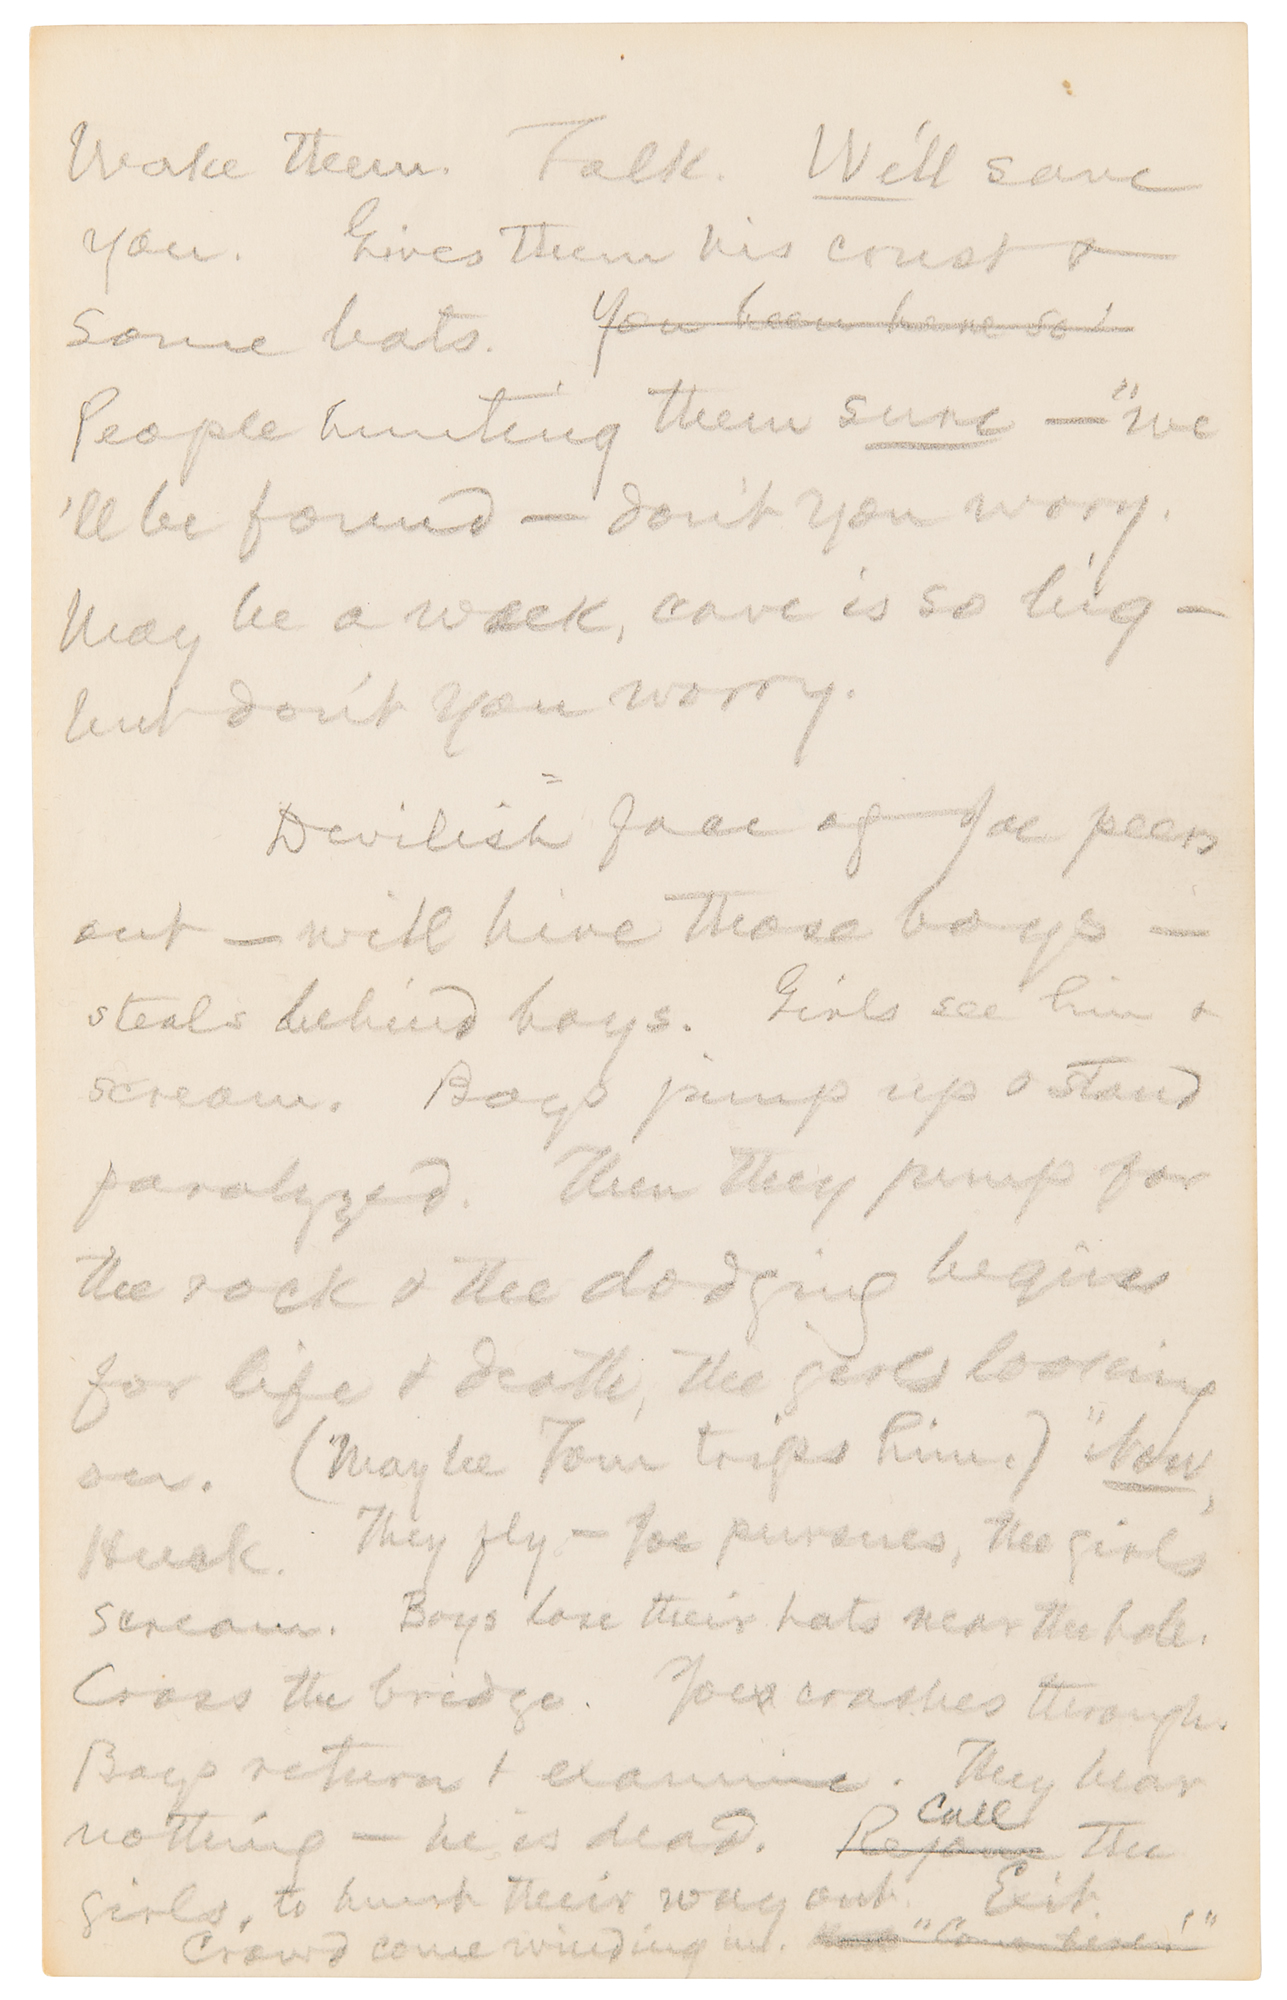 Wake them. Talk. We'll save
you. Gives them his coat &
some bats. You been here so
People hunting them sure — "we
'll be found — don't you worry.
May be a week, cave is so big —
but don't you worry.
Devilish face of Joe peers
out — will hive those boys —
steals behind boys. Girls see him &
scream. Boys jump up & stand
paralyzed. Then they jump for
the rock & the dodging begins
for life & death, the girls looking
on. (Maybe Tom trips him.) "Now,
Huck. They fly — Joe pursues, the girls
scream. Boys lose their hats near the hole.
Cross the bridge. Joe crashes through.
Boys return & examine. They hear
nothing — he is dead. Rejoin Call the
girls, to hunt their way out. Exit.
Crowd come winding in. "Come here!"